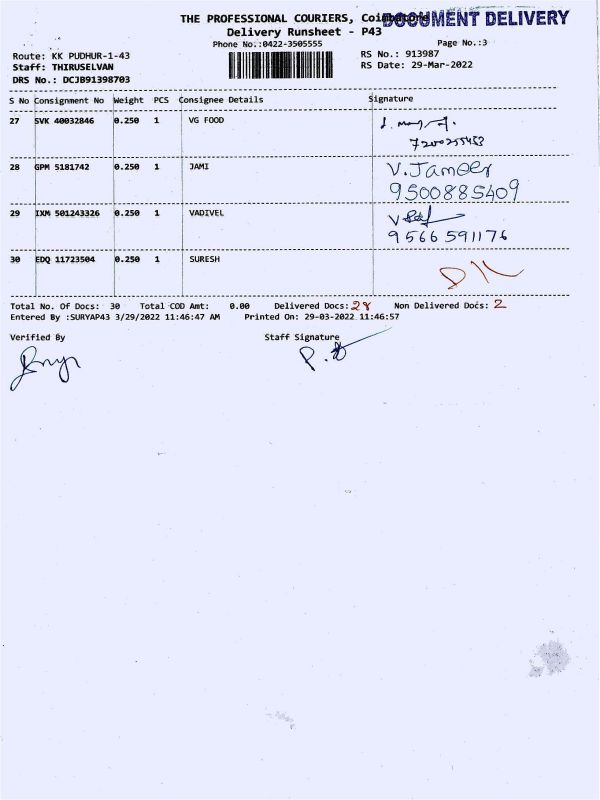 THE PROFESSIONAL COURIERS, Coimbatore
DOCUMENT DELIVERY
Delivery Runsheet - P43
Phone No.:0422-3505555
Page No.:3
Route: KK PUDHUR-1-43
RS No.: 913987
Staff: THIRUSELVAN
RS Date: 29-Mar-2022
DRS No.: DCJB91398703
S No Consignment No Weight PCS Consignee Details Signature
27 SVK 40032846 0.250 1 VG FOOD
7200255453
28 GPM 5181742 0.250 1 JAMI V.Jameer
9500885409
29 IXM 501243326 0.250 1 VADIVEL
9566591176
30 EDQ 11723504 0.250 1 SURESH
Total No. Of Docs: 30 Total COD Amt: 0.00 Delivered Docs: 28 Non Delivered Docs: 2
Entered By :SURYAP43 3/29/2022 11:46:47 AM Printed On: 29-03-2022 11:46:57
Verified By Staff Signature